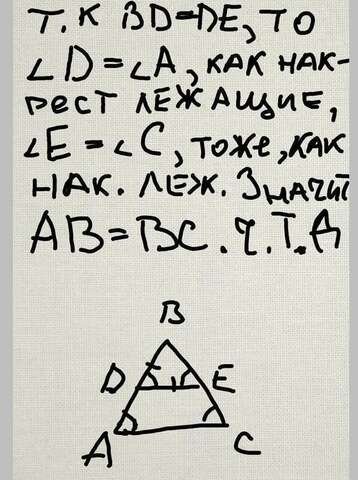 Т.К BD=DE, ТО
∠D=∠A, КАК НАК-
РЕСТ ЛЕЖАЩИЕ,
∠E=∠C, ТОЖЕ, КАК
НАК. ЛЕЖ. ЗНАЧИТ
AB=BC. Ч.Т.Д
B
D E
A C